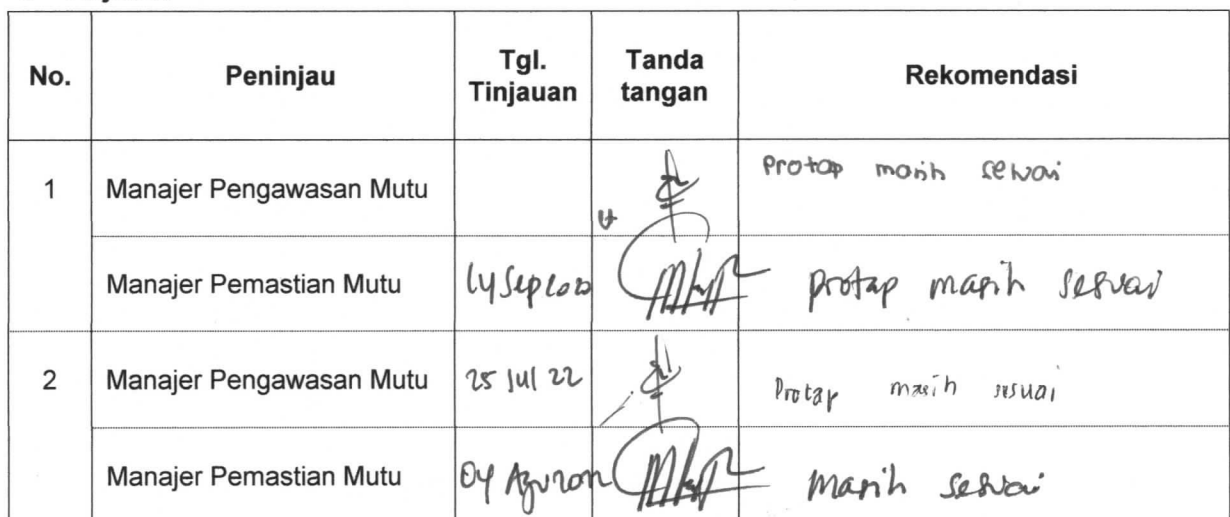 No. Peninjau Tgl. Tinjauan Tanda tangan Rekomendasi
1 Manajer Pengawasan Mutu Protap masih sesuai
Manajer Pemastian Mutu 14 Sep 2020 protap masih sesuai
2 Manajer Pengawasan Mutu 25 Jul 22 Protap masih sesuai
Manajer Pemastian Mutu 04 Agu masih sesuai